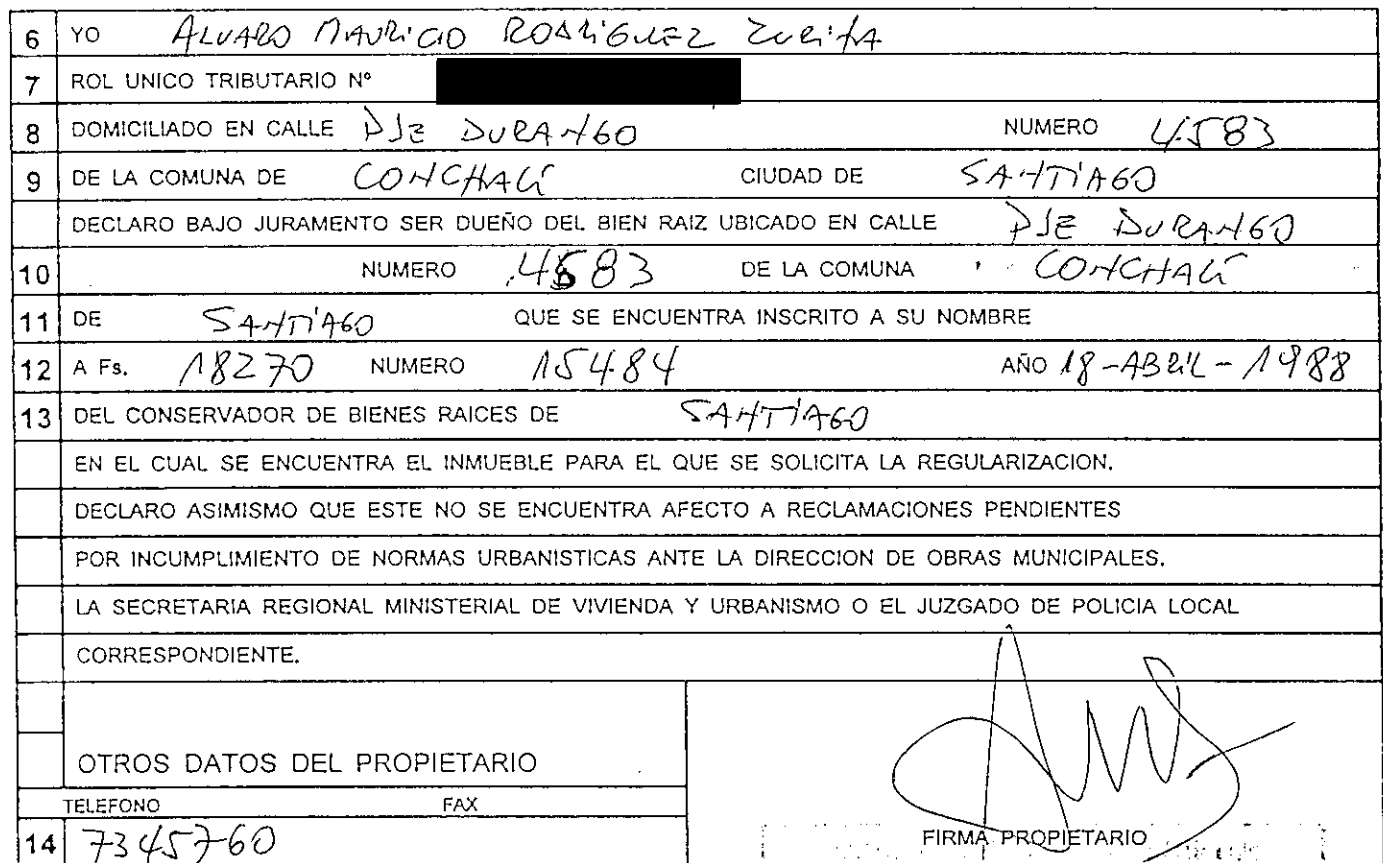 6 YO ALVARO MAURICIO RODRIGUEZ ZURITA
7 ROL UNICO TRIBUTARIO Nº
8 DOMICILIADO EN CALLE PJE DURANGO NUMERO 4583
9 DE LA COMUNA DE CONCHALÍ CIUDAD DE SANTIAGO
DECLARO BAJO JURAMENTO SER DUEÑO DEL BIEN RAIZ UBICADO EN CALLE PJE DURANGO
10 NUMERO 4583 DE LA COMUNA CONCHALÍ
11 DE SANTIAGO QUE SE ENCUENTRA INSCRITO A SU NOMBRE
12 A Fs. 18270 NUMERO 15484 AÑO 18-ABRIL-1988
13 DEL CONSERVADOR DE BIENES RAICES DE SANTIAGO
EN EL CUAL SE ENCUENTRA EL INMUEBLE PARA EL QUE SE SOLICITA LA REGULARIZACION.
DECLARO ASIMISMO QUE ESTE NO SE ENCUENTRA AFECTO A RECLAMACIONES PENDIENTES
POR INCUMPLIMIENTO DE NORMAS URBANISTICAS ANTE LA DIRECCION DE OBRAS MUNICIPALES.
LA SECRETARIA REGIONAL MINISTERIAL DE VIVIENDA Y URBANISMO O EL JUZGADO DE POLICIA LOCAL
CORRESPONDIENTE.
OTROS DATOS DEL PROPIETARIO
TELEFONO FAX
14 7345760 FIRMA PROPIETARIO